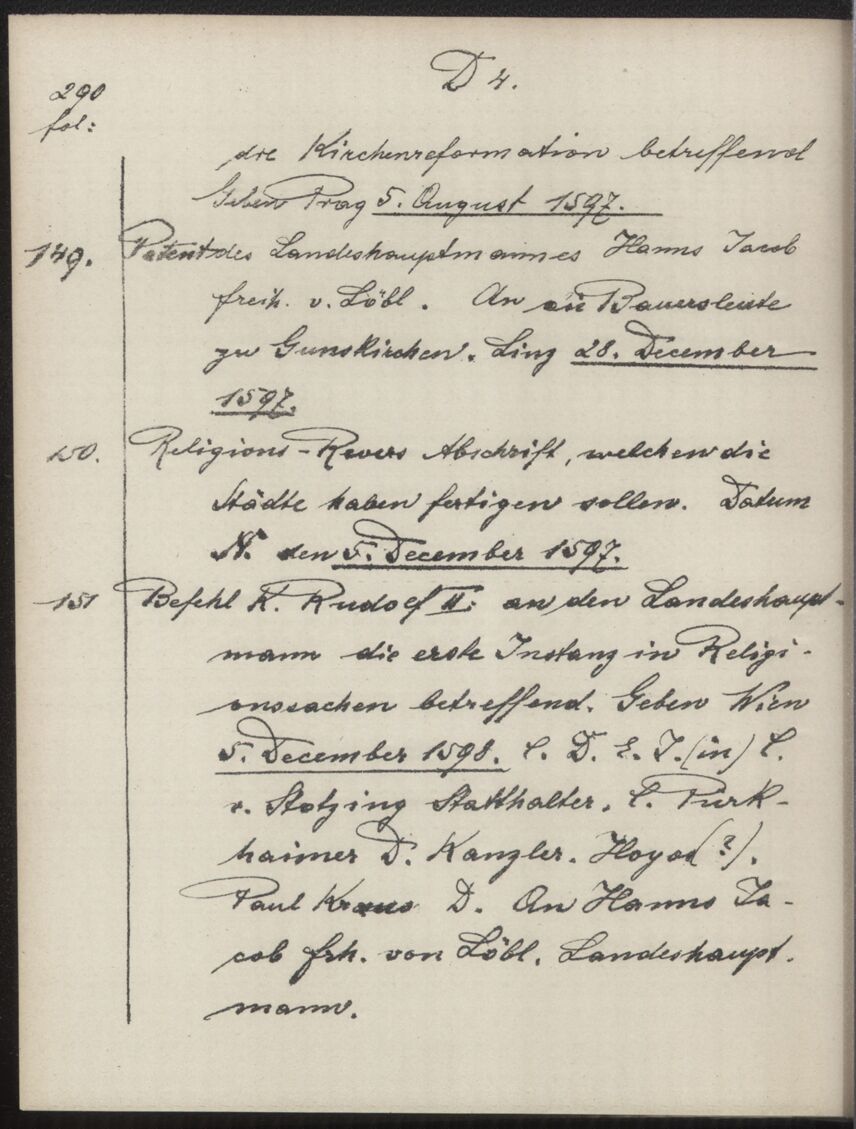 D 4.
290
fol:
die Kirchenreformation betreffend
Geben Prag 5. August 1597.
149. Patent des Landeshauptmannes Hanns Jacob
freih. v. Löbl. An die Bauersleute
zu Gunskirchen. Linz 28. December
1597.
150. Religions-Revers Abschrift, welchen die
Städte haben fertigen sollen. Datum
N. den 5. December 1597.
151 Befehl K. Rudolf II: an den Landeshaupt-
mann die erste Instanz in Religi-
onssachen betreffend. Geben Wien
5. December 1598. C. D. E. I. (in) C.
v. Stotzing Statthalter. C. Pürk-
haimer D. Kanzler. Hoyos (?).
Paul Kraus D. An Hanns Ja-
cob frh. von Löbl. Landeshaupt.
mann.